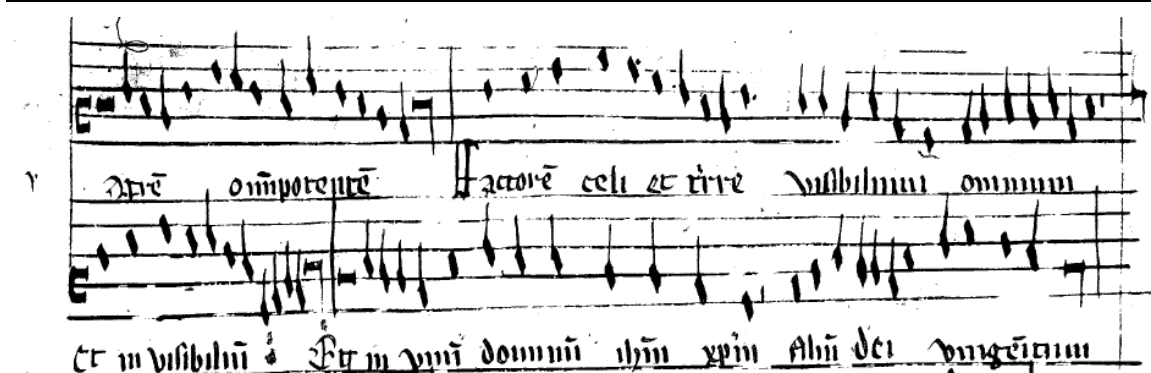 atrē omīpotentē Factorē celi et t'rre visibilium omnium
Et in visibiliū Et in vnū dominū ihm̄ xpm̄ filiū dei vnigenitum